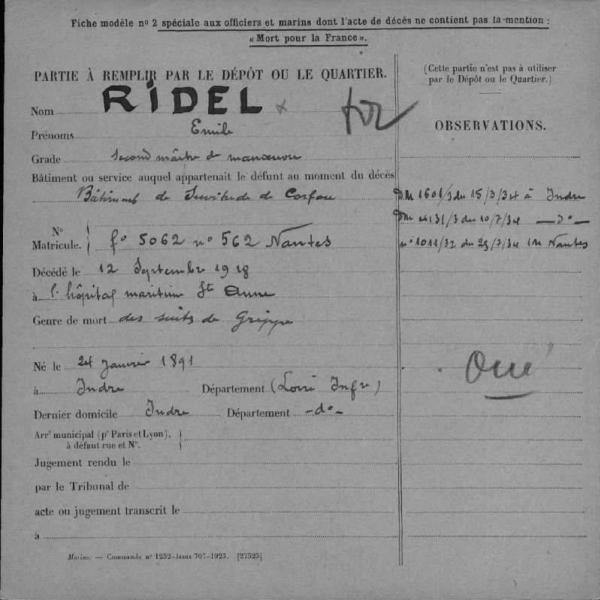 Fiche modèle nº 2 spéciale aux officiers et marins dont l'acte de décès ne contient pas la mention :
« Mort pour la France ».
PARTIE À REMPLIR PAR LE DÉPÔT OU LE QUARTIER.
(Cette partie n'est pas à utiliser
par le Dépôt ou le Quartier.)
Nom RIDEL
Prénoms Emile
OBSERVATIONS.
Grade second maître de manœuvre
Bâtiment ou service auquel appartenait le défunt au moment du décès
Bâtiments de Servitude de Corfou
DM 1601/3 du 15/3/34 à Indre
DM 4131/3 du 10/7/34 —dº—
Nº
Matricule. fº 5062 nº 562 Nantes
nº 1011/32 du 25/7/34 In Nantes
Décédé le 12 Septembre 1918
à l'hôpital maritime Ste Anne
Genre de mort des suites de Grippe
Né le 24 Janvier 1891
Oui
à Indre Département (Loire Infre)
Dernier domicile Indre Département —dº—
Arrt municipal (pr Paris et Lyon),
à défaut rue et Nº.
Jugement rendu le
par le Tribunal de
acte ou jugement transcrit le
à
Marine. — Commande nº 1252-Janss 707-1923. [27525]